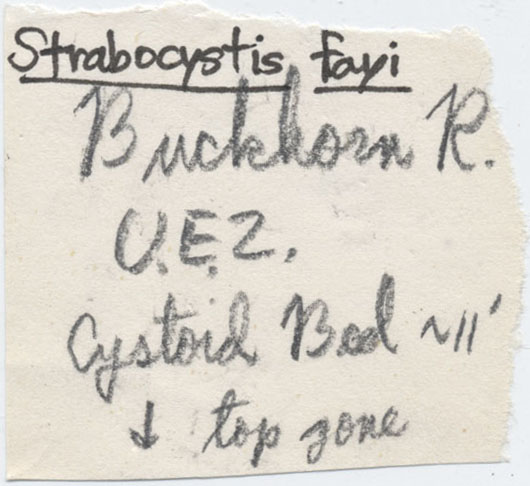 Strabocystis fayi
Buckhorn R.
U.E.Z.
Cystoid Bed ~11'
↓ top zone